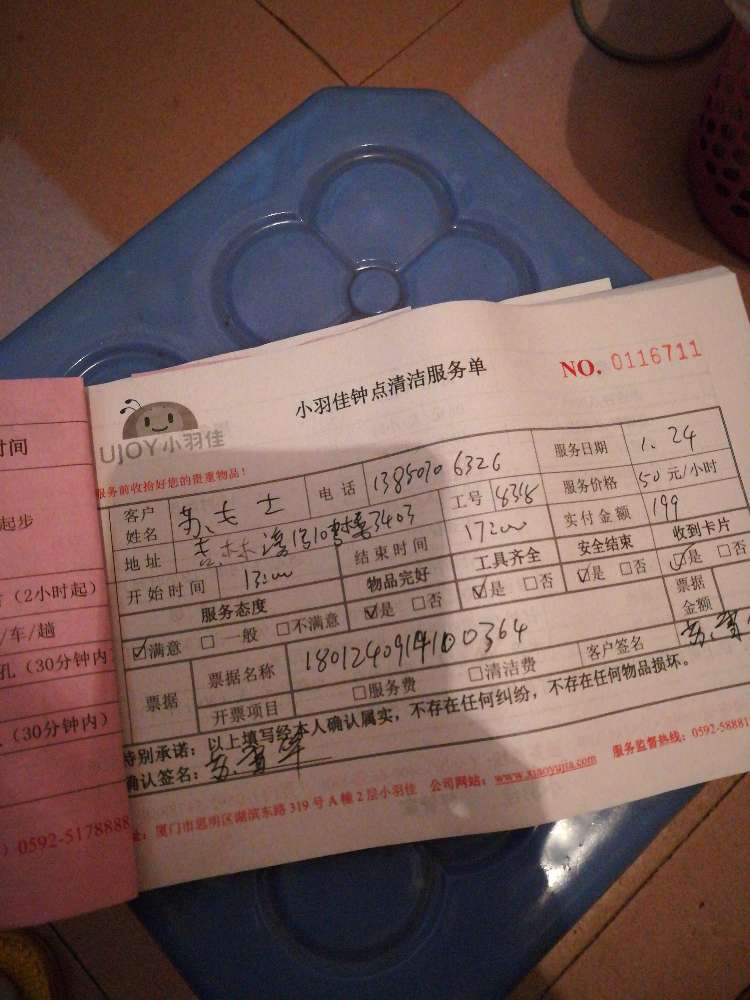 小羽佳钟点清洁服务单
NO. 0116711
UJOY小羽佳
服务前收拾好您的贵重物品!
客户姓名 苏女士 电话 13850706326 服务日期 1.24
地址 吉林 3403 工号 8318 服务价格 50元/小时
开始时间 13:00 结束时间 17:00 实付金额 199
服务态度 物品完好 工具齐全 安全结束 收到卡片
☑满意 □一般 □不满意 ☑是 □否 ☑是 □否 ☑是 □否 ☑是 □否
票据 票据名称 18012409141100364 票据金额
开票项目 □服务费 □清洁费 客户签名
特别承诺:以上填写经本人确认属实,不存在任何纠纷,不存在任何物品损坏。
确认签名:
厦门市思明区湖滨东路319号A幢2层小羽佳 公司网站:www.xiaoyujia.com 服务监督热线:0592-58881
时间
起步
(2小时起)
/车/趟
孔(30分钟内
(30分钟内)
0592-5178888